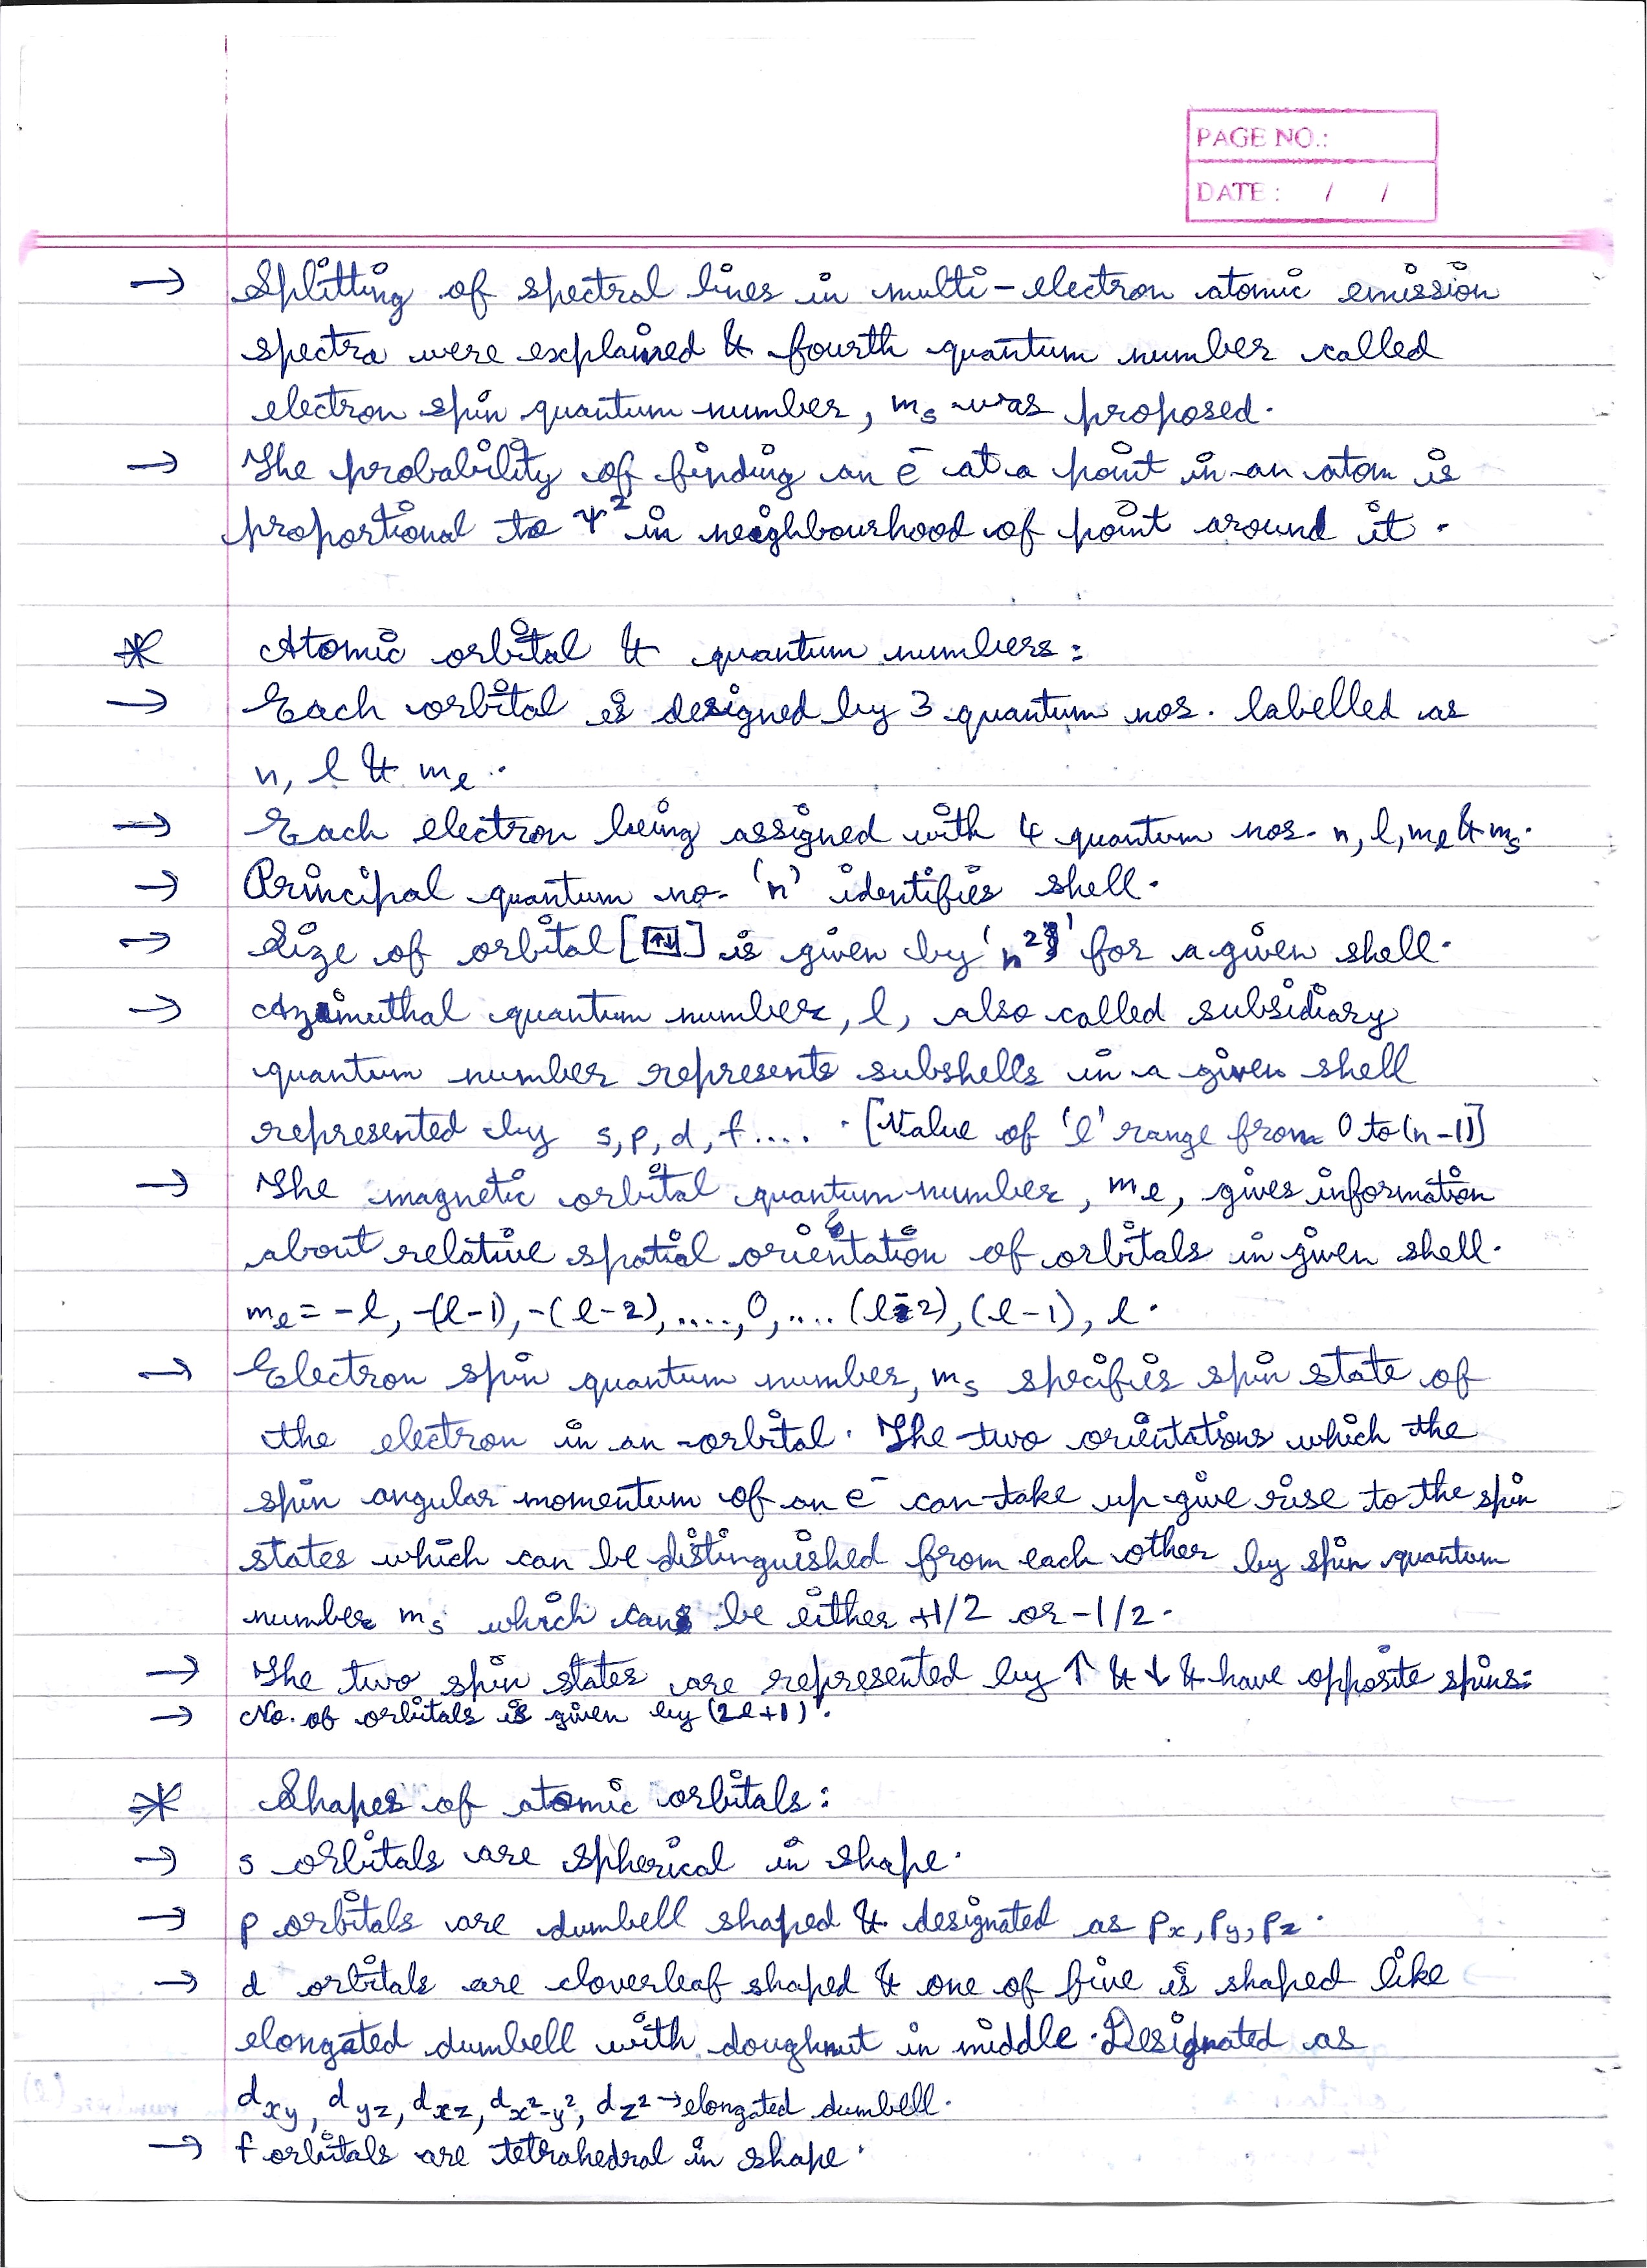 PAGE NO.:
DATE : / /
→ Splitting of spectral lines in multi-electron atomic emission
spectra were explained & fourth quantum number called
electron spin quantum number, mₛ was proposed.
→ The probability of finding an e⁻ at a point in an atom is
proportional to ψ² in neighbourhood of point around it.
* Atomic orbital & quantum numbers:
→ Each orbital is designed by 3 quantum nos. labelled as
n, l & mₗ.
→ Each electron being assigned with 4 quantum nos. n, l, mₗ & mₛ.
→ Principal quantum no. 'n' identifies shell.
→ Size of orbital [↑↓] is given by 'n²' for a given shell.
→ Azimuthal quantum number, l, also called subsidiary
quantum number represents subshells in a given shell
represented by s, p, d, f..... [Value of 'l' range from 0 to (n-1)]
→ The magnetic orbital quantum number, mₗ, gives information
about relative spatial orientation of orbitals in given shell.
mₗ = -l, -(l-1), -(l-2), ....., 0, .... (l-2), (l-1), l.
→ Electron spin quantum number, mₛ specifies spin state of
the electron in an orbital. The two orientations which the
spin angular momentum of an e⁻ can take up give rise to the spin
states which can be distinguished from each other by spin quantum
number mₛ which can be either +1/2 or -1/2.
→ The two spin states are represented by ↑ & ↓ & have opposite spins.
→ No. of orbitals is given by (2l+1).
* Shapes of atomic orbitals:
→ s orbitals are spherical in shape.
→ p orbitals are dumbell shaped & designated as px, py, pz.
→ d orbitals are cloverleaf shaped & one of five is shaped like
elongated dumbell with doughnut in middle. Designated as
dxy, dyz, dxz, dx²-y², dz² → elongated dumbell.
→ f orbitals are tetrahedral in shape.